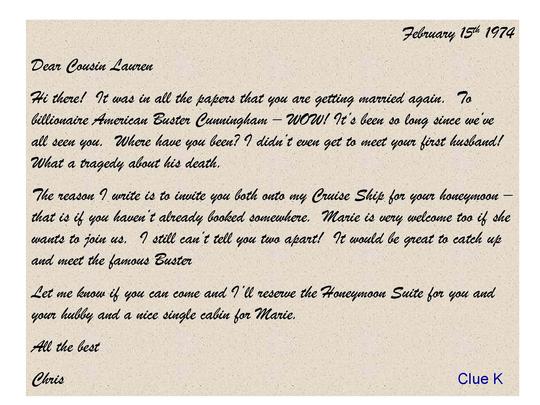 February 15th 1974
Dear Cousin Lauren
Hi there! It was in all the papers that you are getting married again. To
billionaire American Buster Cunningham – WOW! It's been so long since we've
all seen you. Where have you been? I didn't even get to meet your first husband!
What a tragedy about his death.
The reason I write is to invite you both onto my Cruise Ship for your honeymoon –
that is if you haven't already booked somewhere. Marie is very welcome too if she
wants to join us. I still can't tell you two apart! It would be great to catch up
and meet the famous Buster
Let me know if you can come and I'll reserve the Honeymoon Suite for you and
your hubby and a nice single cabin for Marie.
All the best
Chris
Clue K